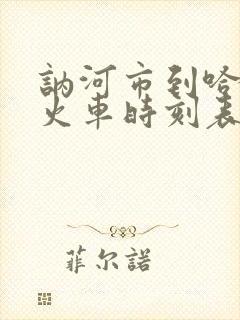 訥河市到哈
火車時刻表
菲尔諾